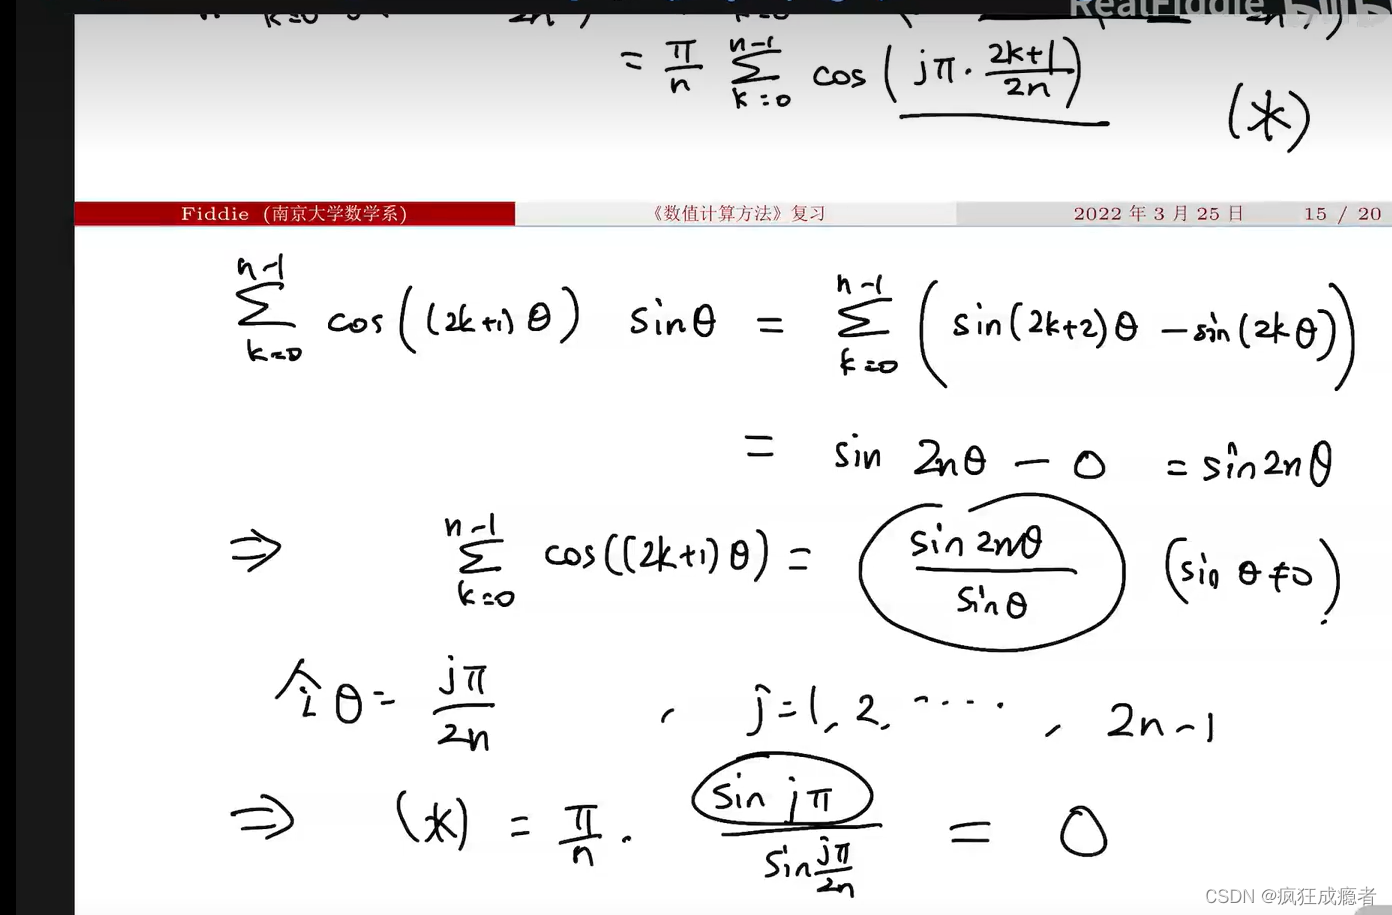 RealFiddle bilibili
= π/n ∑_{k=0}^{n-1} cos(jπ · (2k+1)/(2n)) (*)
Fiddie (南京大学数学系) 《数值计算方法》复习 2022 年 3 月 25 日 15 / 20
∑_{k=0}^{n-1} cos((2k+1)θ) sinθ = ∑_{k=0}^{n-1} (sin(2k+2)θ - sin(2kθ))
= sin 2nθ - 0 = sin2nθ
⇒ ∑_{k=0}^{n-1} cos((2k+1)θ) = sin2nθ/sinθ (sin θ≠0).
令 θ= jπ/2n , j=1, 2, ····, 2n-1
⇒ (*) = π/n · sin jπ / sin(jπ/2n) = 0
CSDN @疯狂成瘾者